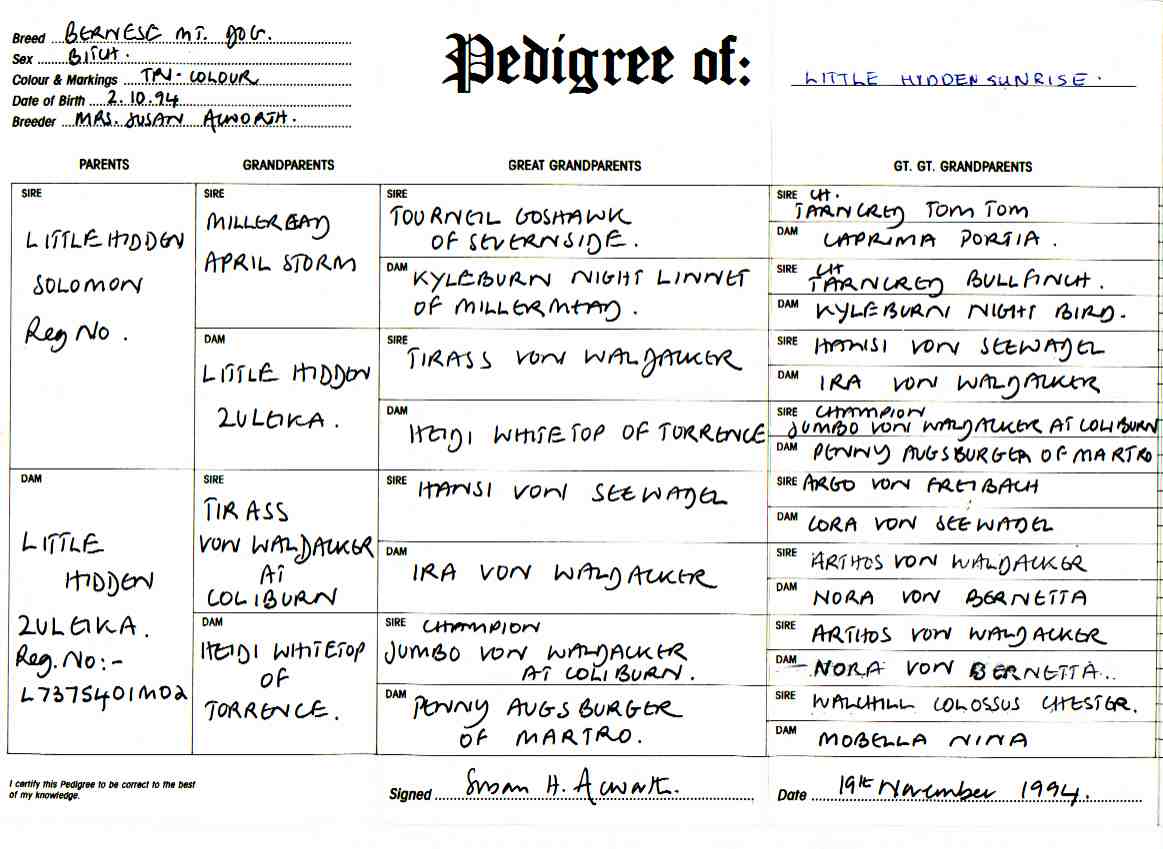 Breed BERNESE MT. DOG.
Sex BITCH.
Colour & Markings TRI-COLOUR
Date of Birth 2.10.94
Breeder MRS. SUSAN ACWORTH.
Pedigree of:
LITTLE HIDDEN SUNRISE.
PARENTS
GRANDPARENTS
GREAT GRANDPARENTS
GT. GT. GRANDPARENTS
SIRE
LITTLE HIDDEN
SOLOMON
Reg No.
DAM
LITTLE
HIDDEN
ZULEIKA.
Reg. No:-
L7375401M02
SIRE
MILLERMEAD
APRIL STORM
DAM
LITTLE HIDDEN
ZULEIKA.
SIRE
TIRASS
VON WALDACKER
AT
COLIBURN
DAM
HEIDI WHITETOP
OF
TORRENCE.
SIRE
TOURNEIL GOSHAWK
OF SEVERNSIDE.
DAM
KYLEBURN NIGHT LINNET
OF MILLERMEAD.
SIRE
TIRASS VON WALDACKER
DAM
HEIDI WHITETOP OF TORRENCE
SIRE
HANSI VON SEEWADEL
DAM
IRA VON WALDACKER
SIRE CHAMPION
JUMBO VON WALDACKER
AT COLIBURN.
DAM
PENNY AUGSBURGER
OF MARTRO.
SIRE CH.
TARNCRED TOM TOM
DAM
CAPRIMA PORTIA.
SIRE CH
TARNCRED BULLFINCH.
DAM
KYLEBURN NIGHT BIRD.
SIRE
HANSI VON SEEWADEL
DAM
IRA VON WALDACKER
SIRE CHAMPION
JUMBO VON WALDACKER AT COLIBURN
DAM PENNY AUGSBURGER OF MARTRO
SIRE ARGO VON FREIBACH
DAM CORA VON SEEWADEL
SIRE
ARTHOS VON WALDACKER
DAM
NORA VON BERNETTA
SIRE
ARTHOS VON WALDACKER
DAM NORA VON BERNETTA..
SIRE
WALCHILL COLOSSUS CHESTER.
DAM
MOBELLA NINA
I certify this Pedigree to be correct to the best
of my knowledge.
Signed Susan H. Acworth.
Date 19th November 1994.